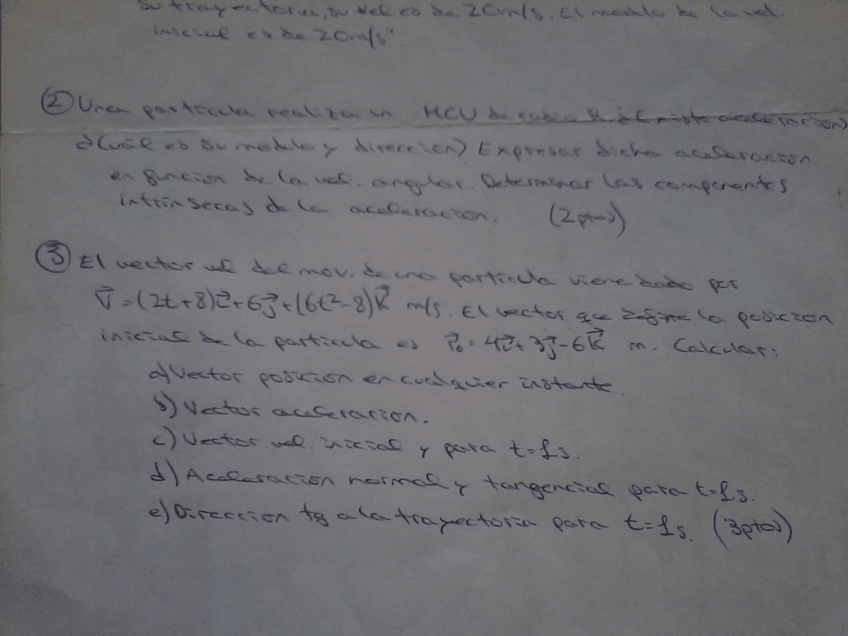 su trayectoria, su vel es de 20m/s. El modulo de la vel.
inicial es de 20m/s".
② Una particula realiza un MCU de radio R. ¿Existe aceleracion?
¿Cuál es su modulo y direccion? Expresar dicha aceleracion
en funcion de la vel. angular. Determinar las componentes
intrinsecas de la aceleracion. (2ptos)
③ El vector vel del mov. de una particula viene dado por
v⃗ = (2t+8)i⃗+6j⃗+(6t²-8)k⃗ m/s. El vector que define la posicion
inicial de la particula es r⃗₀ = 4i⃗+3j⃗-6k⃗ m. Calcular:
a) Vector posicion en cualquier instante.
b) Vector aceleracion.
c) Vector vel. inicial y para t=1s.
d) Aceleracion normal y tangencial para t=1s.
e) Direccion tg a la trayectoria para t=1s. (3ptos)